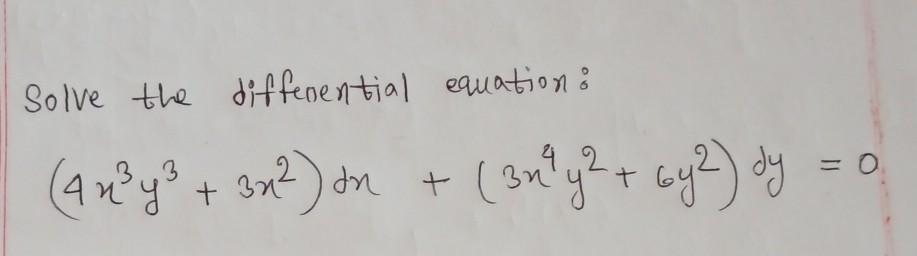 Solve the differential equation:
(4x³y³ + 3x²) dx + (3x⁴y² + 6y²) dy = 0